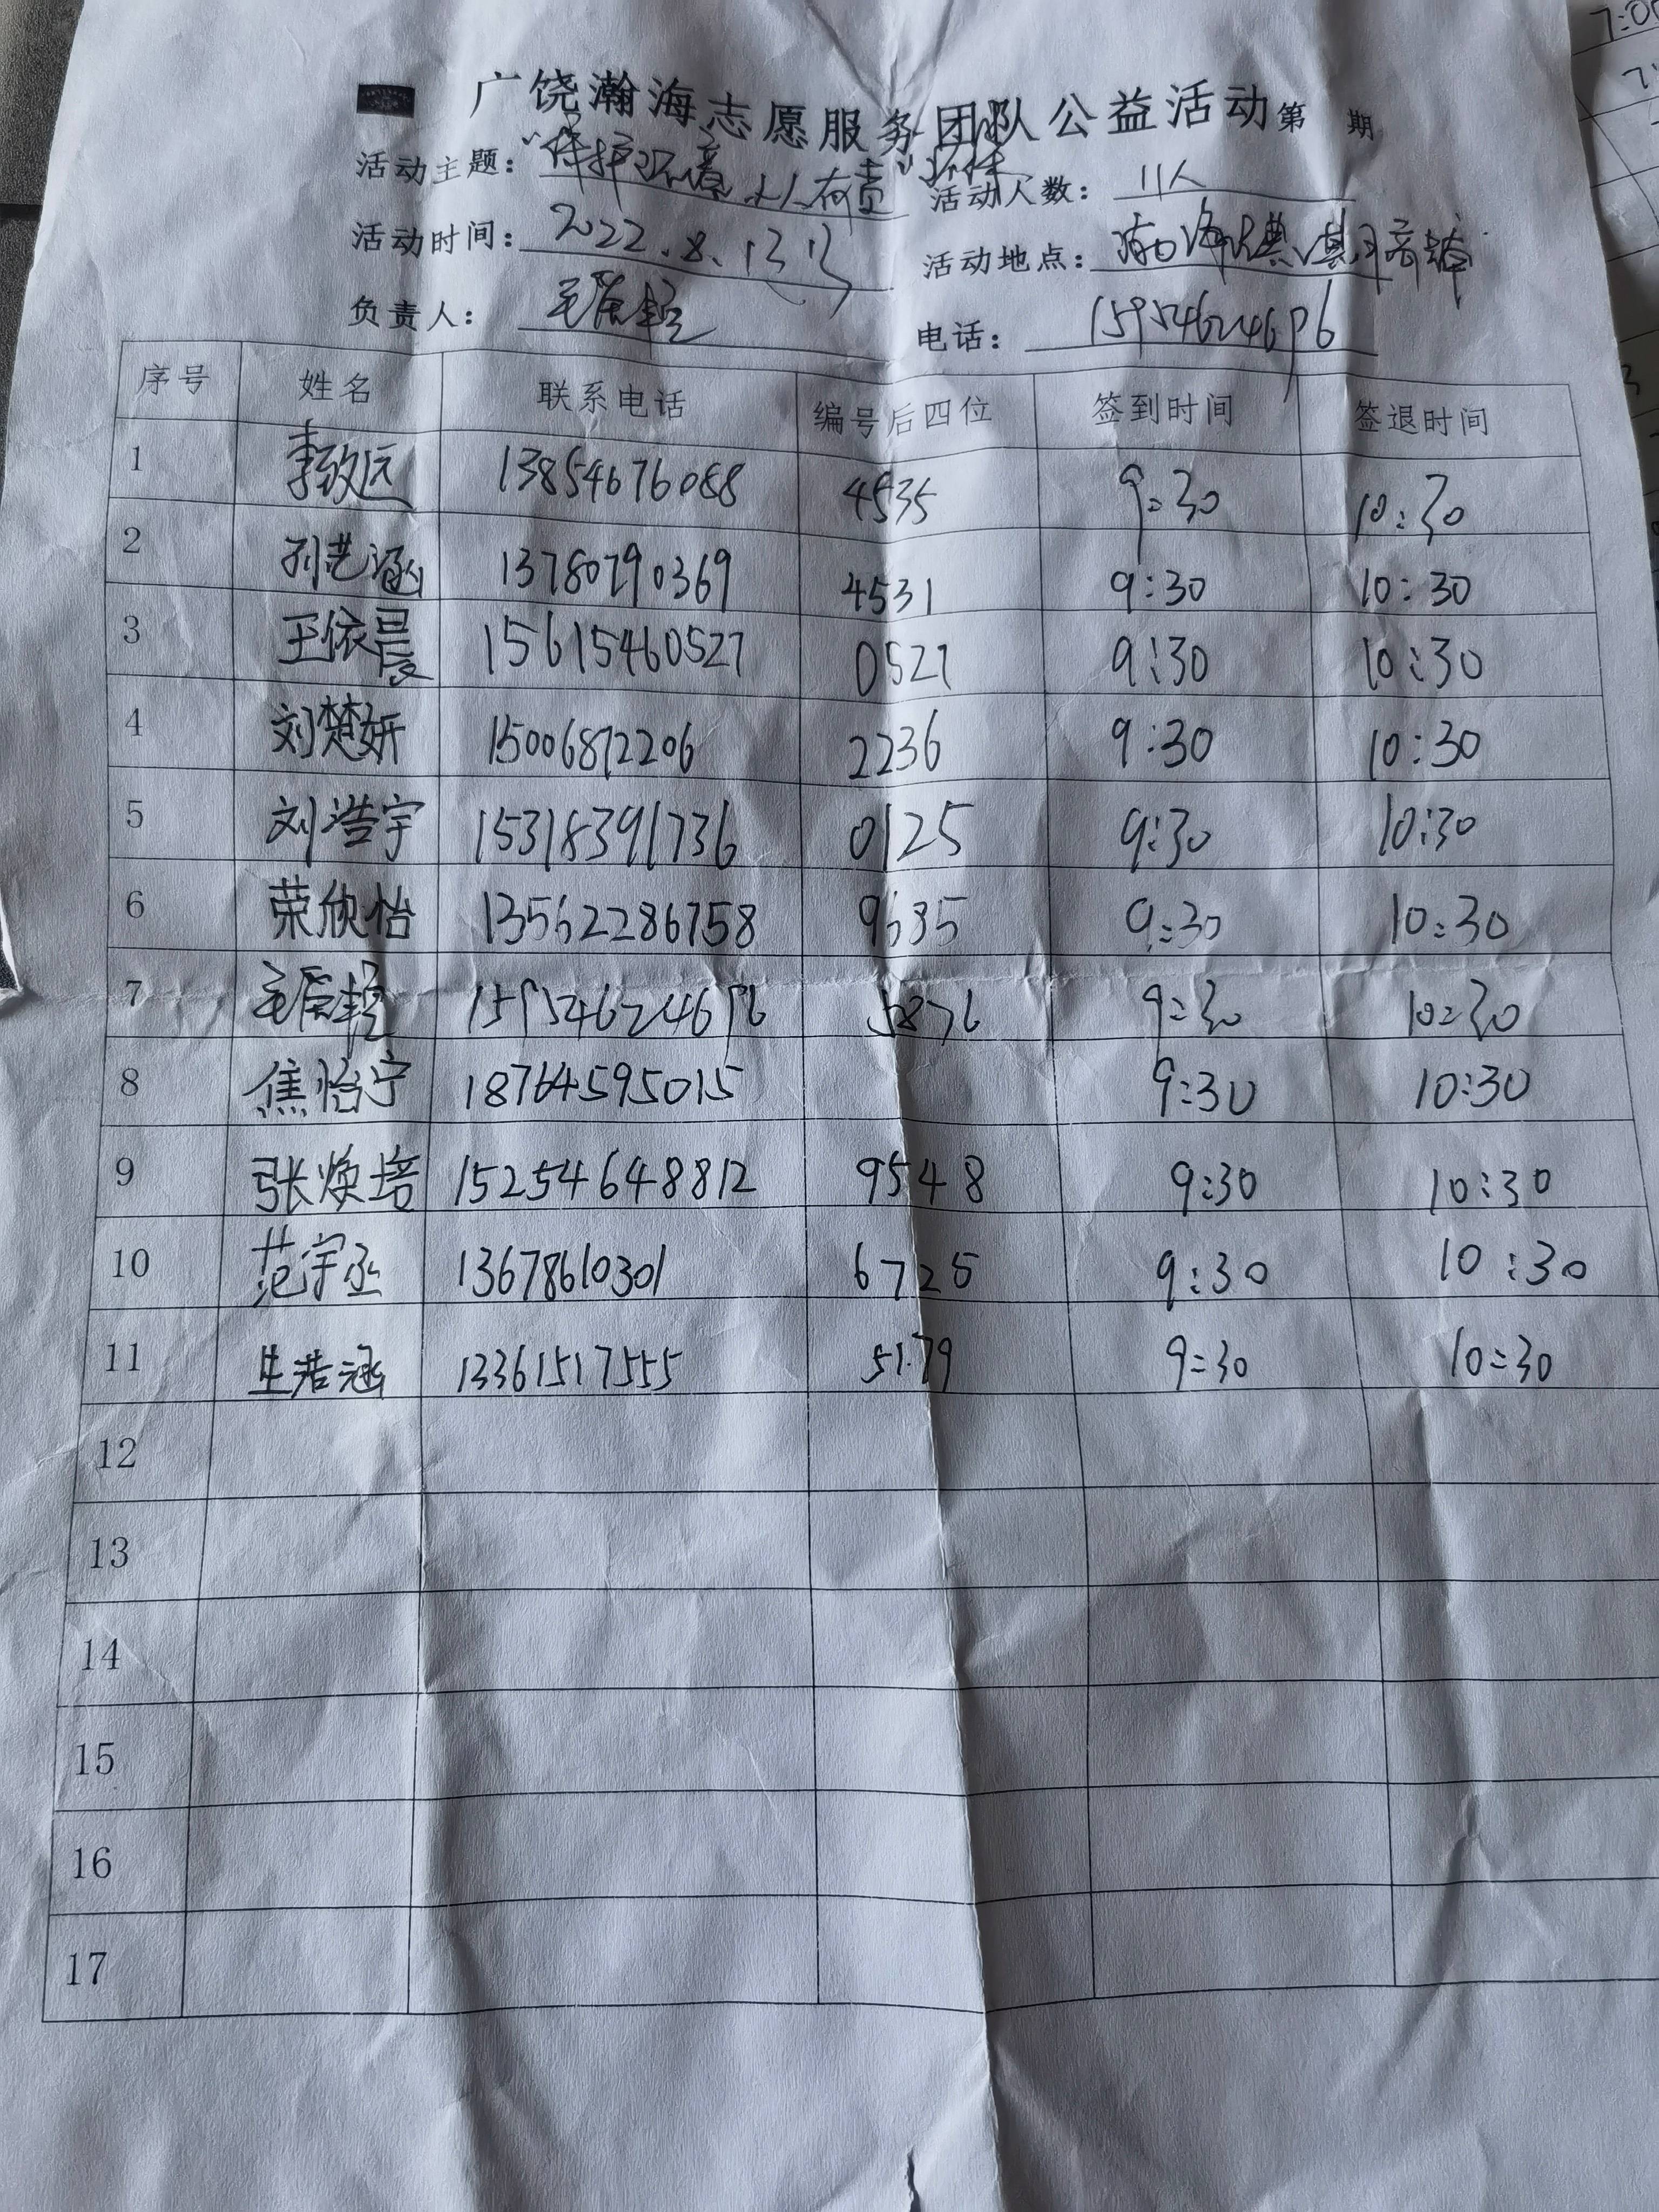 广饶瀚海志愿服务团队公益活动第 期
活动主题：“保护环境 人人有责”环保 活动人数：11人
活动时间：2022.8.13 活动地点：
负责人： 电话：15954624696
序号 姓名 联系电话 编号后四位 签到时间 签退时间
1 李致远 13854676088 4535 9:30 10:30
2 孙艺涵 13780790369 4531 9:30 10:30
3 王依晨 15615460527 0527 9:30 10:30
4 刘楚妍 15006872206 2236 9:30 10:30
5 刘浩宇 15318391736 0125 9:30 10:30
6 荣欣怡 13562286758 9635 9:30 10:30
7 15954624696 5876 9:30 10:30
8 焦怡宁 18764595015 9:30 10:30
9 张焕培 15254648812 9548 9:30 10:30
10 范宇丞 13678610301 6725 9:30 10:30
11 生浩涵 13361517555 5179 9:30 10:30
12
13
14
15
16
17
7:00